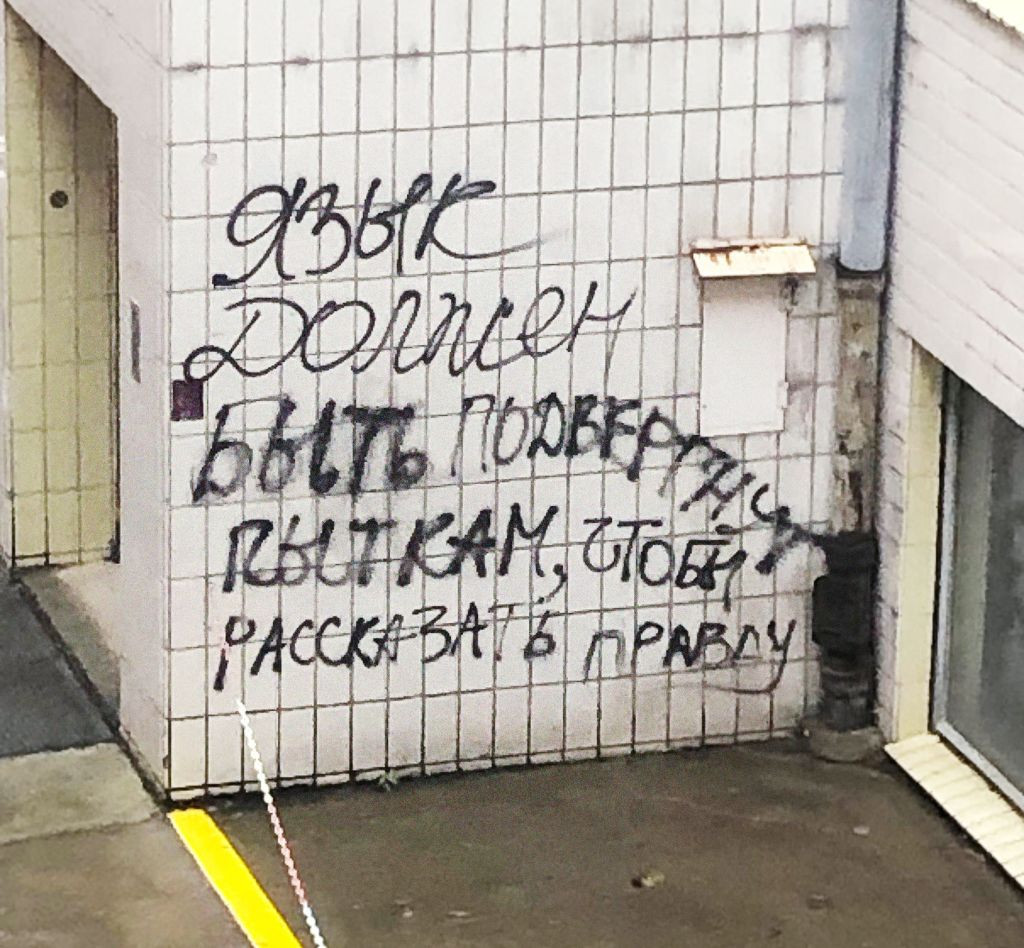 ЯЗЫК
ДОЛЖЕН
БЫТЬ ПОДВЕРГНУТ
ПЫТКАМ, ЧТОБЫ
РАССКАЗАТЬ ПРАВДУ